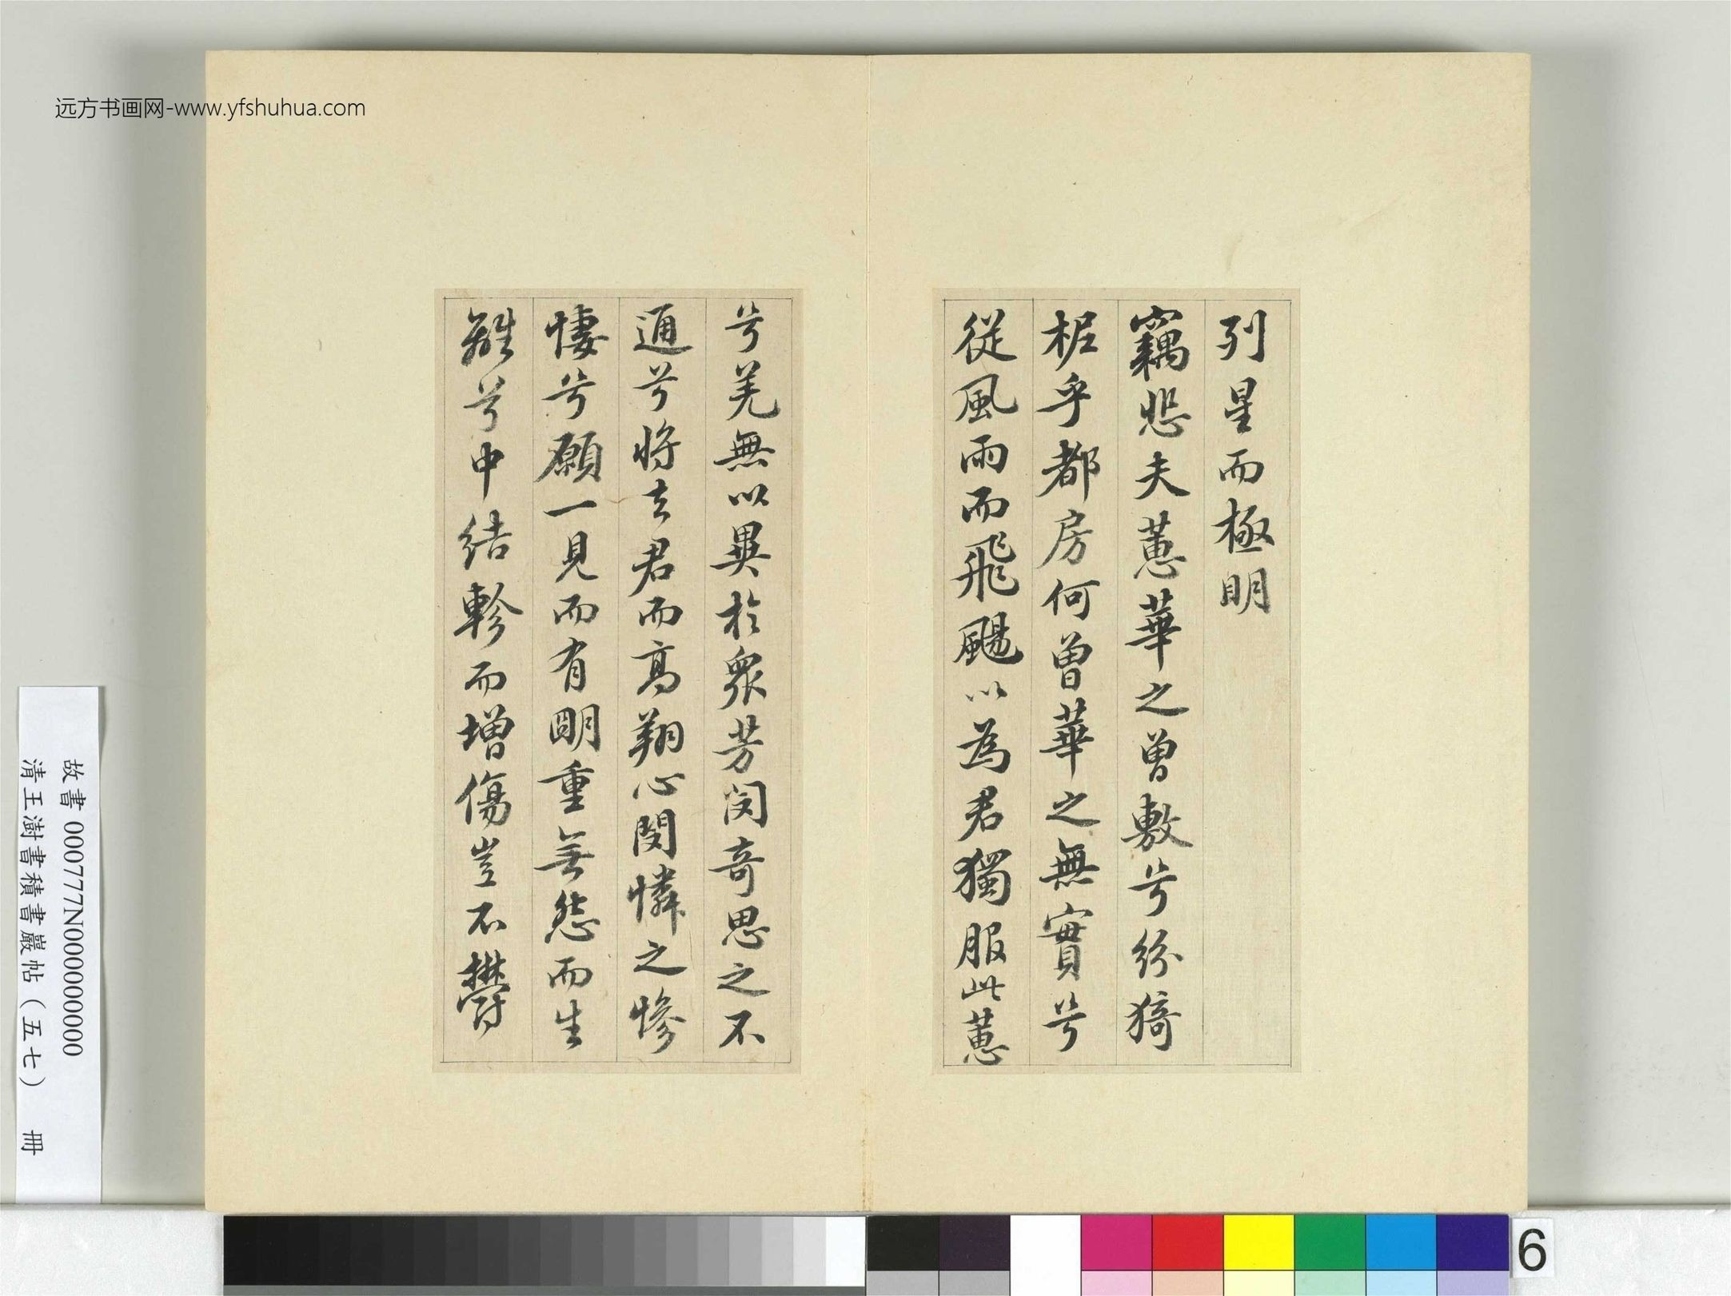 远方书画网-www.yfshuhua.com
列星而極明
竊悲夫蕙華之曾敷兮紛猗
柅乎都房何曾華之無實兮
從風雨而飛颺以為君獨服此蕙
兮羌無以異於衆芳閔奇思之不
通兮將去君而高翔心閔憐之慘
悽兮願一見而有明重無怨而生
離兮中結軫而增傷豈不鬱
故書 000777N000000000
清王澍書積書巖帖（五七） 冊
6